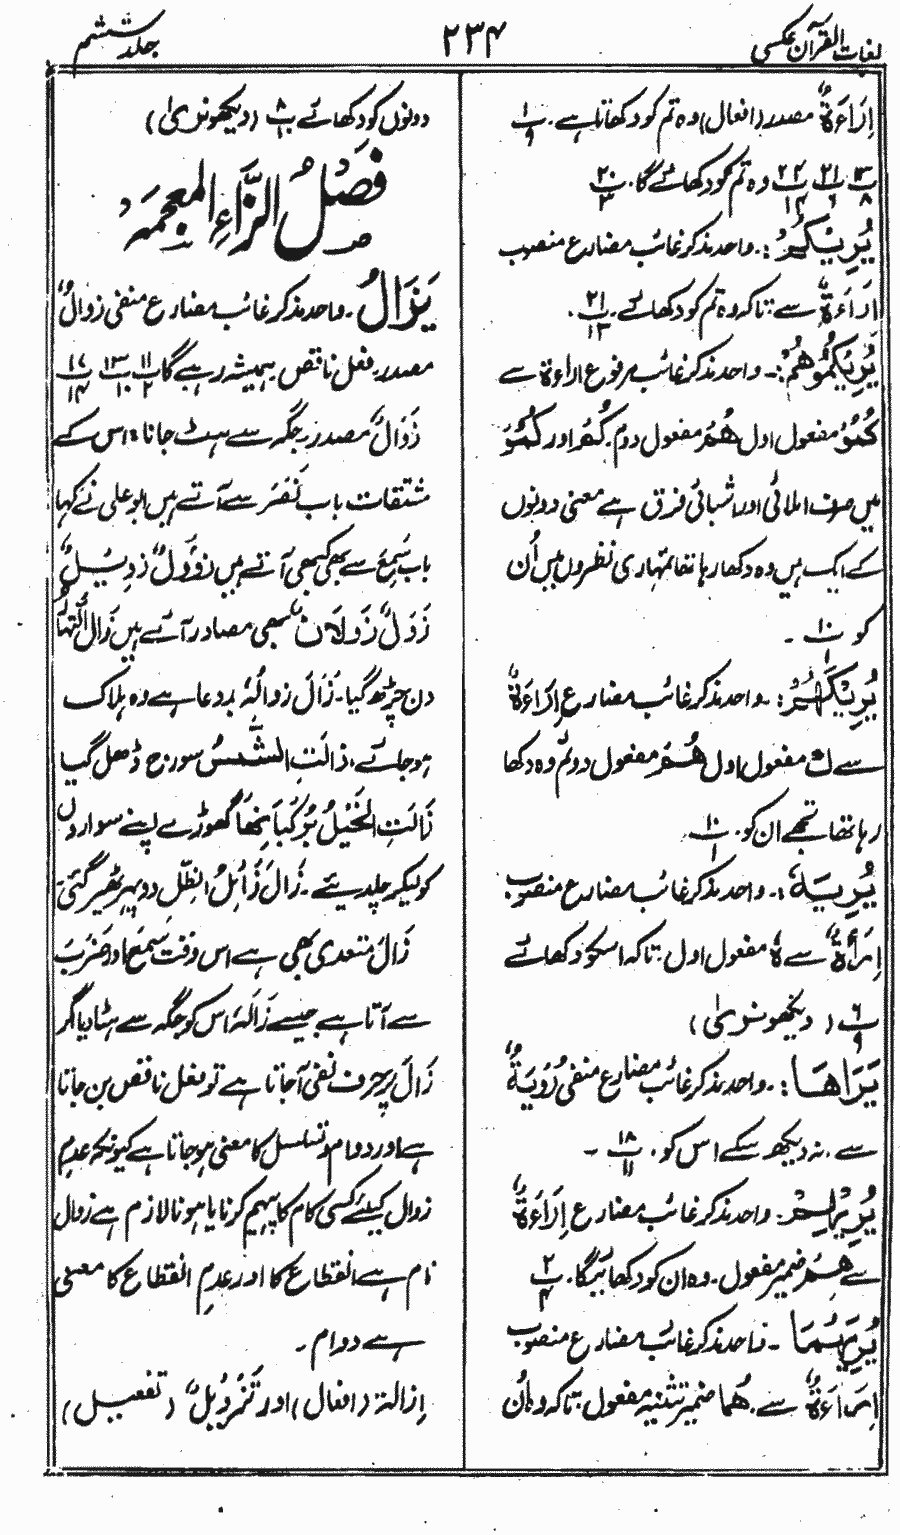 لغات القرآن عکسی
۲۳۴
جلد ششم
اِرَاءَةٌ مصدر (افعال) وہ تم کو دکھاتا ہے۔ پ ۱ ۹
پ ۱۳ ۸ پ ۲۱ ۶ پ ۲۴ ۱۴ وہ تم کو دکھائے گا۔ پ ۲۰ ۳
یُرِیَکُمْ: ۔واحد مذکر غائب مضارع منصوب
اِرَاءَةٌ سے: تاکہ وہ تم کو دکھائے۔ پ ۲۱ ۱۳ ۔
یُرِیْکُمُوْهُمْ: ۔ واحد مذکر غائب مرفوع اراءۃ سے
کُمُوْ مفعول اول هُمْ مفعول دوم۔ کُمْ اور کُمُوْ
میں صرف املائی اور اشباعی فرق ہے معنی دونوں
کے ایک ہیں وہ دکھا رہا تھا تمہاری نظروں میں اُن
کو پ ۱۰ ۱ ۔
یُرِیْکَهُمْ: ۔واحد مذکر غائب مضارع اِرَاءَةٌ
سے كَ مفعول اول هُمْ مفعول دوئم وہ دکھا
رہا تھا تجھے ان کو۔ پ ۱۰ ۱
یُرِیَهٗ: ۔ واحد مذکر غائب مضارع منصوب
اِرَاءَةٌ سے هٗ مفعول اول۔ تاکہ اسکو دکھائے
پ ۶ ۹ (دیکھو نوریٰ)
یَرَاهَا: ۔ واحد مذکر غائب مضارع منفی رُؤیَةٌ
سے۔ نہ دیکھ سکے اس کو۔ پ ۱۸ ۱۱ ۔
یُرِیْهِمْ: ۔واحد مذکر غائب مضارع اِرَاءَةٌ
سے هُمْ ضمیر مفعول۔ وہ ان کو دکھائیگا۔ پ ۲ ۴
یُرِیَهُمَا ۔ واحد مذکر غائب مضارع منصوب
اِرَاءَةٌ سے۔ هُمَا ضمیر تثنیہ مفعول۔ تاکہ وہ اُن
دونوں کو دکھائے پ ۸ ۱۰ (دیکھو نوریٰ)
فَصْلُ الزَّاءِ المعجمہ
یَزَالُ ۔ واحد مذکر غائب مضارع منفی زوالٌ
مصدر فعل ناقص ہمیشہ رہے گا پ ۱۱ ۲ پ ۱۳ ۱۰ پ ۱۷ ۱۴
زَوَالٌ مصدر۔ جگہ سے ہٹ جانا؛ اس کے
مشتقات باب نَصَرَ سے آتے ہیں ابو علی نے کہا
باب سَمِعَ سے بھی کبھی آتے ہیں زوُوُلٌ زِیْلٌ
زَوْلٌ زَوَلَانٌ بھی مصادر آئے ہیں زَالَ النَّهَارُ
دن چڑھ گیا۔ زَالَ زوالُهٗ بددعا ہے وہ ہلاک
ہو جائے، زالتِ الشَّمْسُ سورج ڈھل گیا
زَالَتِ الخَیْلُ بِرُکْبَانِهَا گھوڑے اپنے سواروں
کو لیکر چلدیئے۔ زَالَ زَائِلُ الظِّلِّ دوپہر ٹھیر گئی
زَالَ متعدی بھی ہے اس وقت سَمِعَ اور ضَرَبَ
سے آتا ہے جیسے زَالَهٗ اس کو جگہ سے ہٹا دیا اگر
زَالَ پر حرف نفی آجاتا ہے تو فعل ناقص بن جاتا
ہے اور دوام و تسلسل کا معنی ہو جاتا ہے کیونکہ عدم
زوال کیلئے کسی کام کا پیہم کرنا یا ہونا لازم ہے زوال
نام ہے انقطاع کا اور عدم انقطاع کا معنی
ہے دوام ۔
اِزالۃ (افعال) اور تَزْوِیْلٌ (تفعیل)